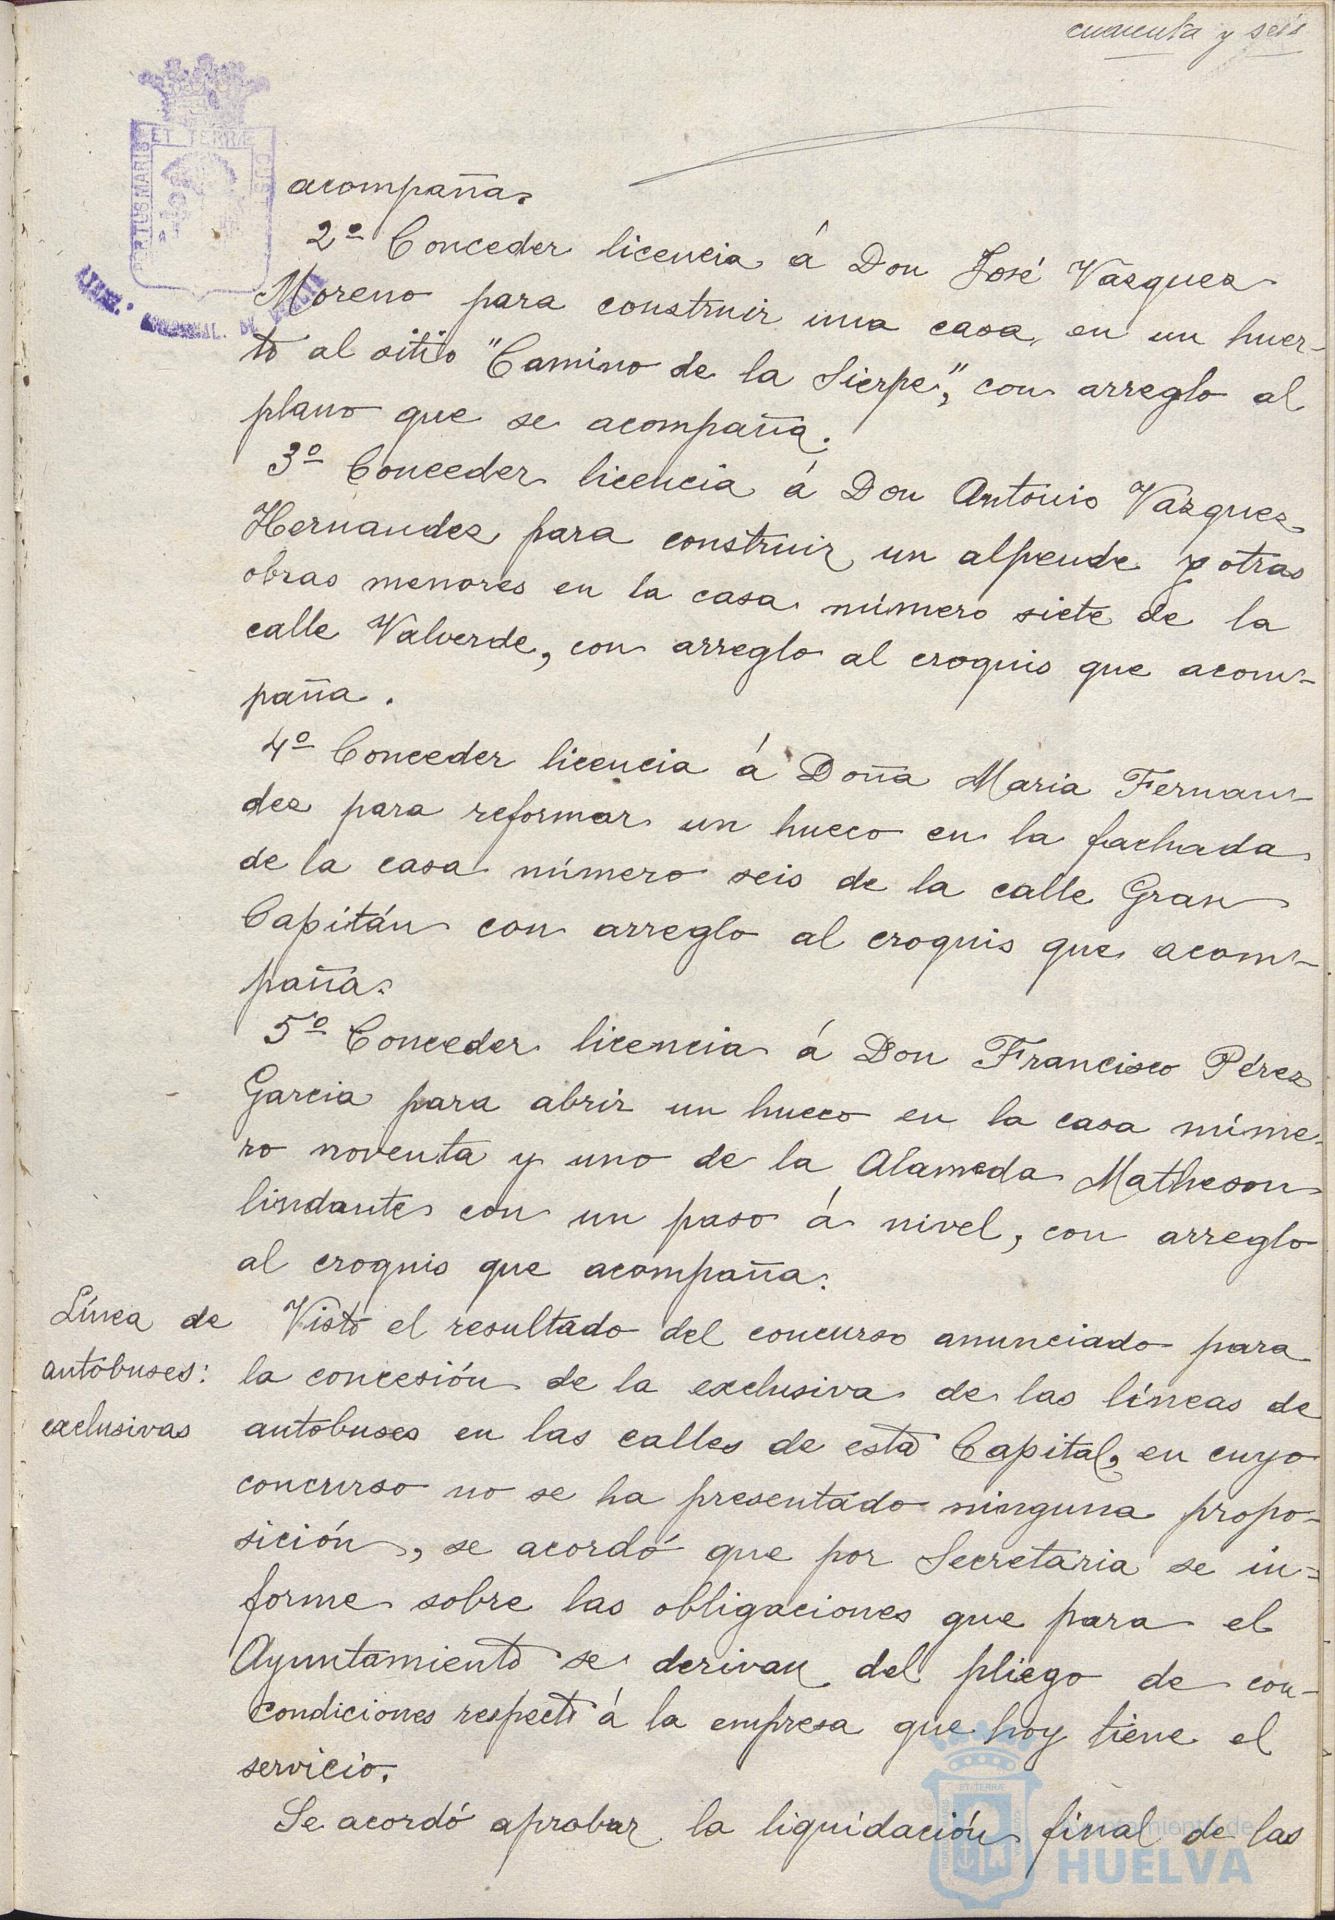 cuarenta y seis
PORTUS MARIS ET TERRÆ CUSTODIA
acompaña.
2º Conceder licencia á Don José Vazquez
Moreno para construir una casa en un huer-
to al sitio "Camino de la Sierpe", con arreglo al
plano que se acompaña.
3º Conceder licencia á Don Antonio Vazquez
Hernandez para construir un alpende y otras
obras menores en la casa número siete de la
calle Valverde, con arreglo al croquis que acom-
paña.
4º Conceder licencia á Doña Maria Fernan-
dez para reformar un hueco en la fachada
de la casa número seis de la calle Gran
Capitán con arreglo al croquis que acom-
paña.
5º Conceder licencia á Don Francisco Pérez
Garcia para abrir un hueco en la casa núme-
ro noventa y uno de la Alameda Matheson
lindante con un paso á nivel, con arreglo
al croquis que acompaña.
Línea de
autobuses:
exclusivas
Visto el resultado del concurso anunciado para
la concesión de la exclusiva de las líneas de
autobuses en las calles de esta Capital, en cuyo
concurso no se ha presentado ninguna propo-
sición, se acordó que por Secretaria se in=
forme sobre las obligaciones que para el
Ayuntamiento se derivan del pliego de con-
condiciones respecto á la empresa que hoy tiene el
servicio.
Se acordó aprobar la liquidación final de las
Ayuntamiento de
HUELVA